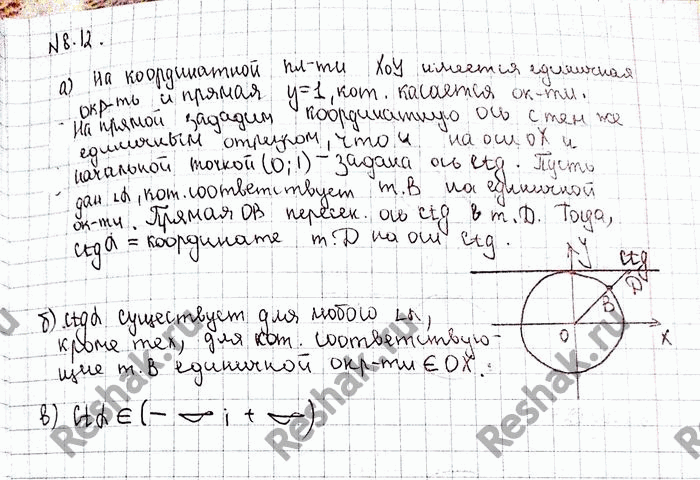 N8.12.
а) На координатной пл-ти XOY имеется единичная
окр-ть и прямая y=1, кот. касается ок-ти.
На прямой зададим координатную ось с тем же
единичным отрезком, что и на оси OX и
начальной точкой (0;1) – задана ось ctg. Пусть
дан ∠α, кот. соответствует т.B на единичной
ок-ти. Прямая OB пересек. ось ctg в т.D. Тогда,
ctgα = координате т.D на оси ctg.
y
ctg
D
B
O
X
б) ctgα существует для любого ∠α,
кроме тех, для кот. соответствую-
щие т.B единичной окр-ти ∈ OX.
в) ctα ∈ (- ∞; + ∞)
Reshak.ru
Reshak.ru
Reshak.ru
Reshak.ru